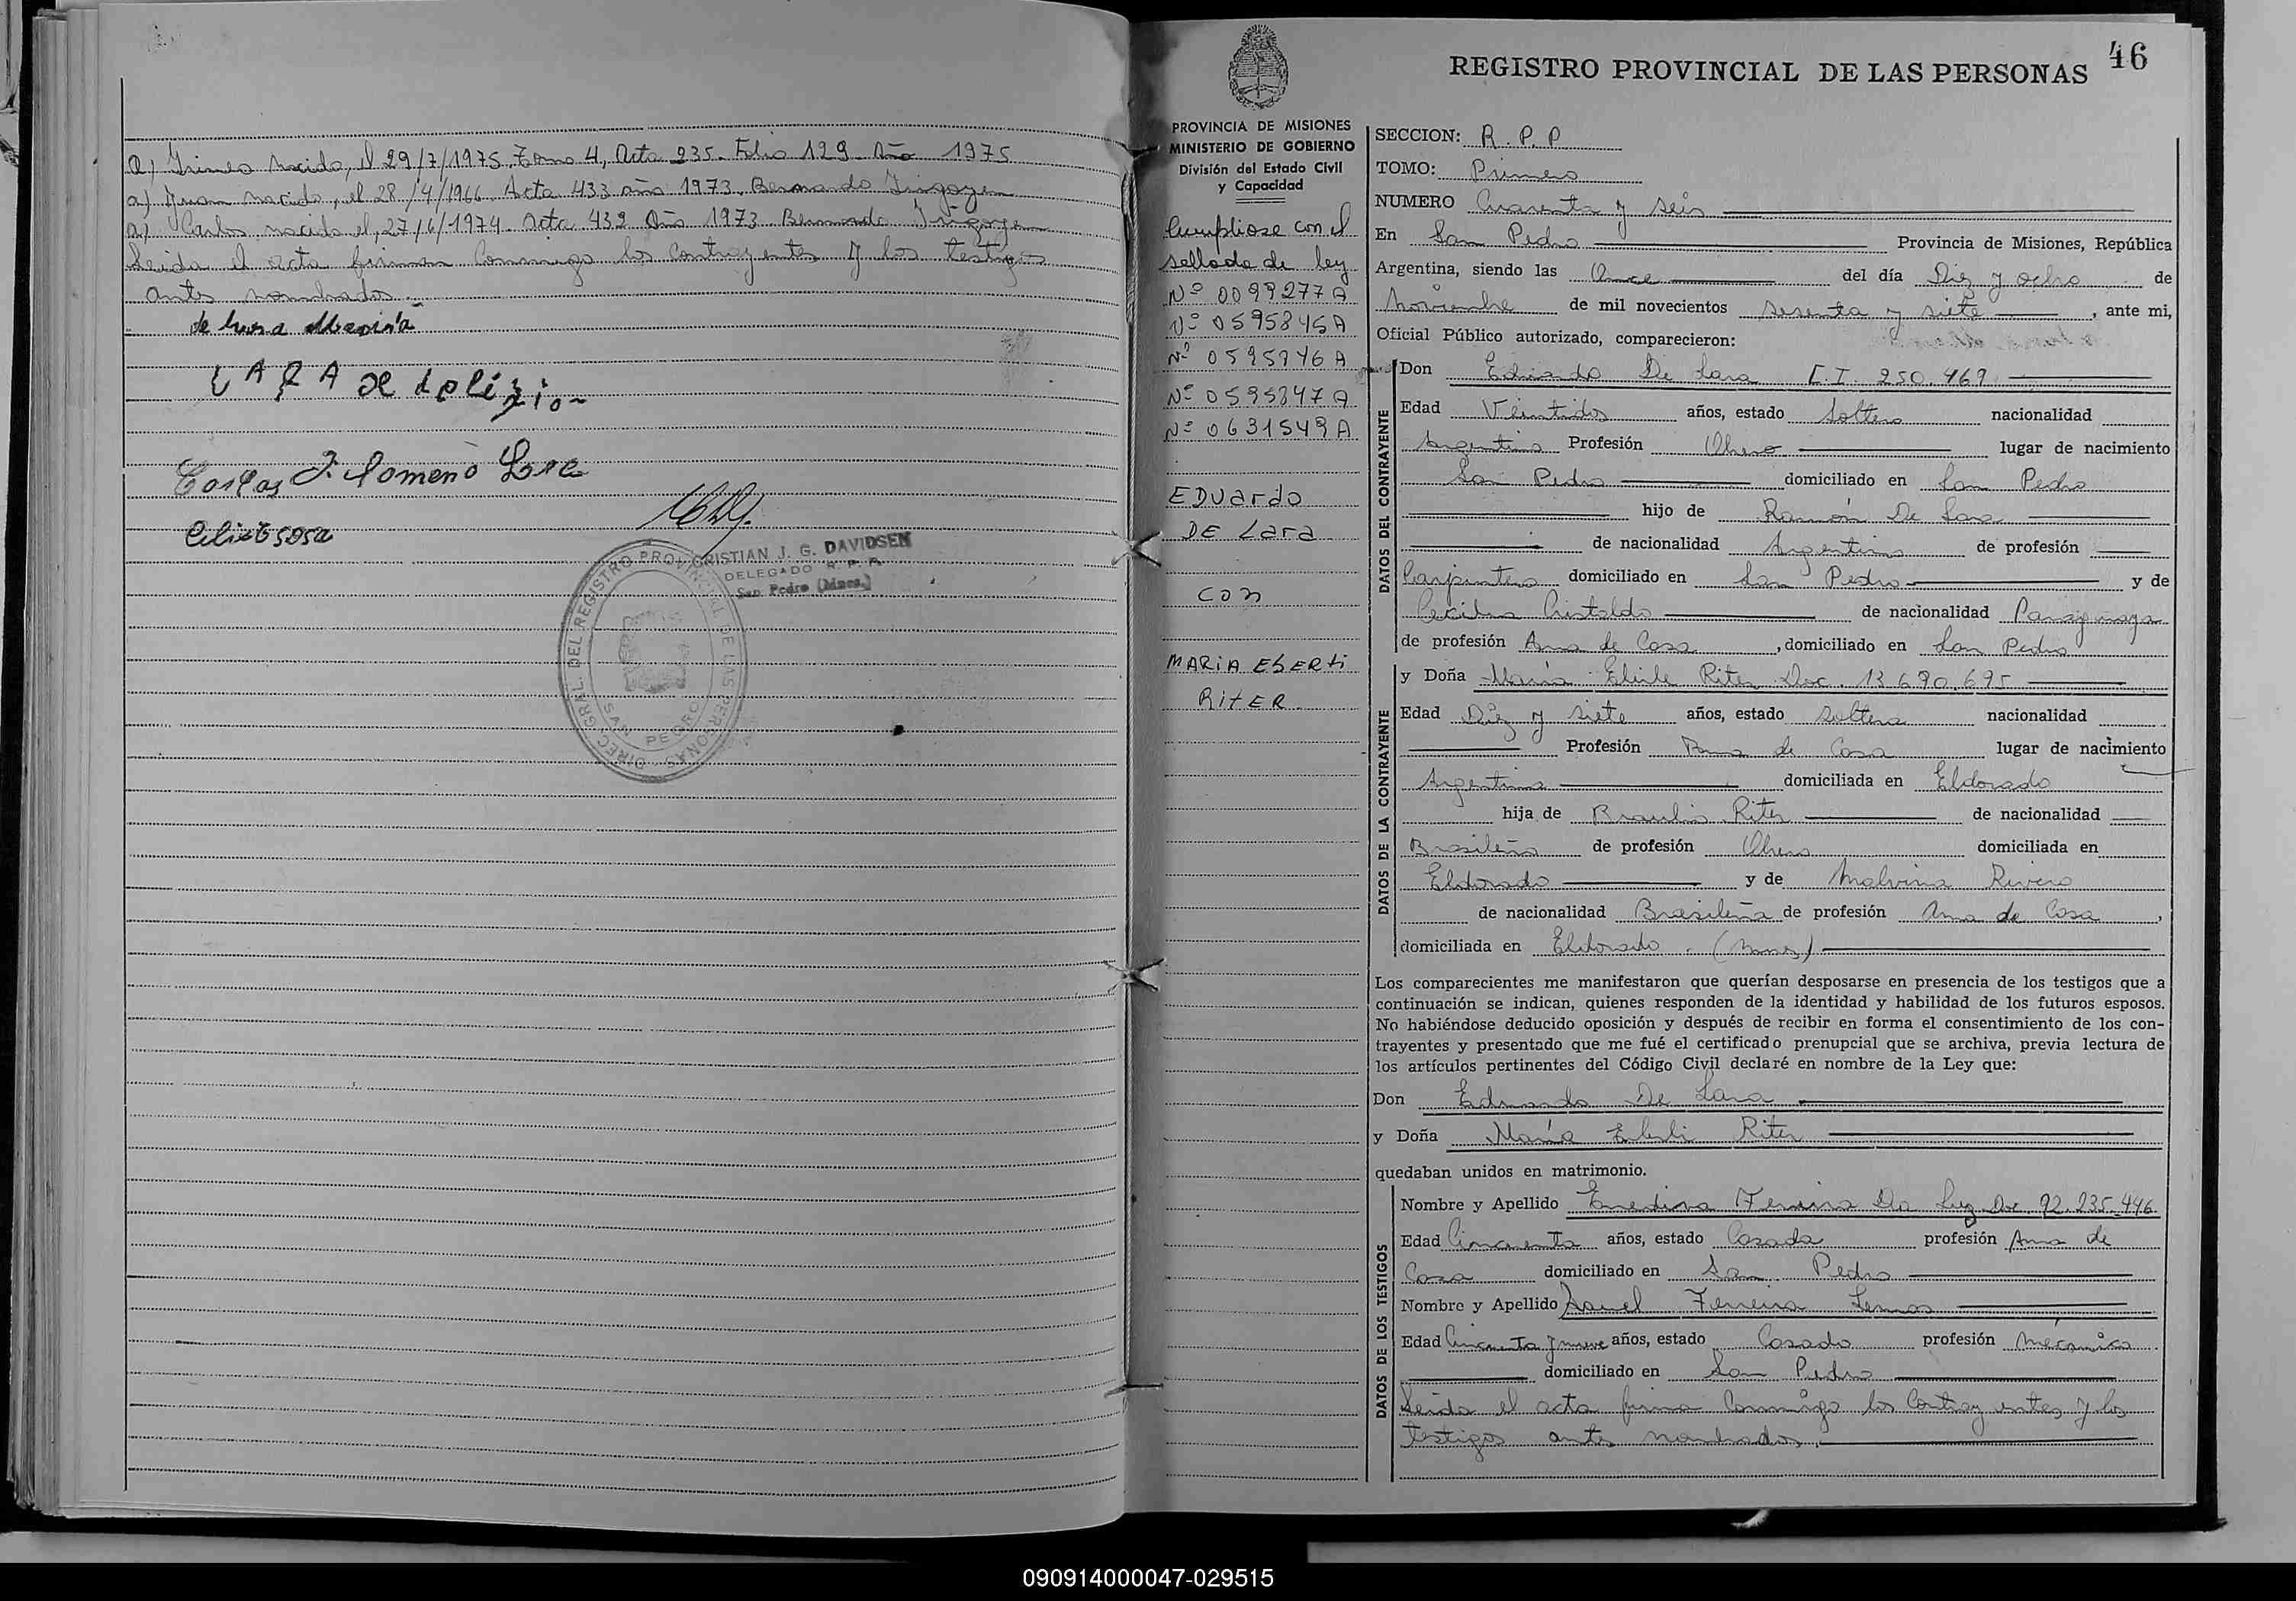 a) Irineo nacido, el 29/7/1975. Tomo 4, Acta 235. Folio 129. Año 1975
a) Juan nacido, el 28/4/1966. Acta 433 año 1973. Bernardo Irigoyen
a) Carlos nacido el, 27/6/1974. Acta 432 Año 1973 Bernardo Irigoyen
Leida el acta firman conmigo los contrayentes y los testigos
antes nombrados.
de lara
LARA
Carlos
sosa
CRISTIAN J. G. DAVIDSEN
DELEGADO R. P. P.
San Pedro (Mnes.)
DIREC. GRAL. DEL REGISTRO PROVINCIAL DE LAS PERSONAS
SAN PEDRO
46
REGISTRO PROVINCIAL DE LAS PERSONAS
PROVINCIA DE MISIONES
MINISTERIO DE GOBIERNO
División del Estado Civil
y Capacidad
Cumpliose con el
sellado de ley
Nº 0099277A
Nº 0595845A
Nº 0595846A
Nº 0595847A
Nº 0631549A
EDUardo
DE Lara
con
MARIA EBERLi
RiTER
SECCION: R.P.P
TOMO: Primero
NUMERO Cuarenta y seis
En San Pedro Provincia de Misiones, República
Argentina, siendo las Once del día Diez y ocho de
Noviembre de mil novecientos setenta y siete, ante mi,
Oficial Público autorizado, comparecieron:
DATOS DEL CONTRAYENTE
Don Eduardo De Lara C.I. 250.469
Edad Veintidos años, estado Soltero nacionalidad
Argentina Profesión Obrero lugar de nacimiento
San Pedro domiciliado en San Pedro
hijo de Ramón De Lara
de nacionalidad Argentina de profesión
Carpintero domiciliado en San Pedro y de
Cristaldo de nacionalidad Paraguaya
de profesión Ama de Casa, domiciliado en San Pedro
DATOS DE LA CONTRAYENTE
y Doña María Riter Doc. 13.690.695
Edad Diez y siete años, estado Soltera nacionalidad
Profesión Ama de Casa lugar de nacimiento
Argentina domiciliada en Eldorado
hija de Braulio Riter de nacionalidad
Brasileña de profesión Obrero domiciliada en
Eldorado y de Malvina Rivero
de nacionalidad Brasileña de profesión Ama de Casa,
domiciliada en Eldorado. (Mnes)
Los comparecientes me manifestaron que querían desposarse en presencia de los testigos que a
continuación se indican, quienes responden de la identidad y habilidad de los futuros esposos.
No habiéndose deducido oposición y después de recibir en forma el consentimiento de los con-
trayentes y presentado que me fué el certificado prenupcial que se archiva, previa lectura de
los artículos pertinentes del Código Civil declaré en nombre de la Ley que:
Don Eduardo De Lara
y Doña María Eberli Riter
quedaban unidos en matrimonio.
DATOS DE LOS TESTIGOS
Nombre y Apellido Enedina Ferreira Da Luz Doc. 92.235.446
Edad Cincuenta años, estado Casada profesión Ama de
Casa domiciliado en San Pedro
Nombre y Apellido Ferreira Lemos
Edad Cincuenta y nueve años, estado Casado profesión Mecánico
domiciliado en San Pedro
Leida el acta firma conmigo los contrayentes y los
testigos antes nombrados.
090914000047-029515